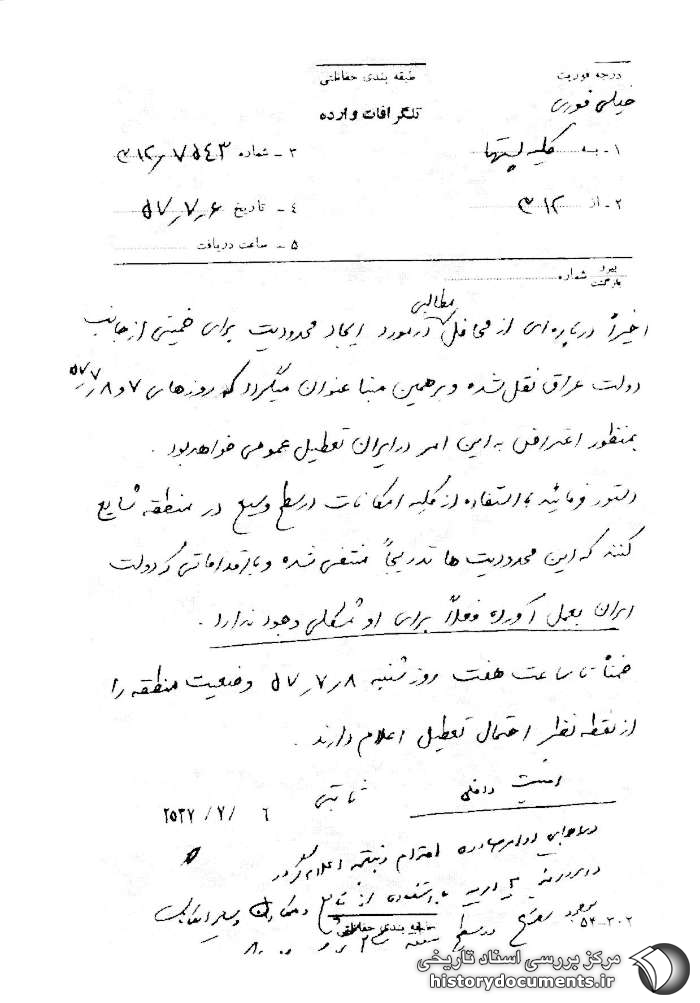 درجه فوریت
طبقه بندی حفاظتی
خیلی فوری
تلگرافات وارده
۱ - به کلیه پستها
۳ - شماره ۳۱۲/۷۵۴۳
۲ - از ۳۱۲
۴ - تاریخ ۵۷/۷/۶
۵ - ساعت دریافت
پیرو
بازگشت شماره
اخیراً در پاره‌ای از محافل مطالبی در مورد ایجاد محدودیت برای خمینی از جانب
دولت عراق نقل شده و بر همین مبنا عنوان میگردد که روزهای ۷ و ۸/۷/۵۷
بمنظور اعتراض به این امر در ایران تعطیل عمومی خواهد بود .
دستور فرمائید با استفاده از کلیه امکانات در سطح وسیع در منطقه شایع
کنند که این محدودیت ها تدریجاً منتفی شده و با اقداماتی که دولت
ایران بعمل آورده فعلاً برای او مشکلی وجود ندارد .
ضمناً تا ساعت هفت روز شنبه ۸/۷/۵۷ وضعیت منطقه را
از نقطه نظر احتمال تعطیل اعلام دارند .
امنیت داخلی ثابتی ۶ /۷/ ۲۵۳۷
اوامر صادره اقدام و نتیجه اعلام گردد
با استفاده از منابع و
در سطح
۵۲-۲۰۲
طبقه بندی حفاظتی
مرکز بررسی اسناد تاریخی
historydocuments.ir